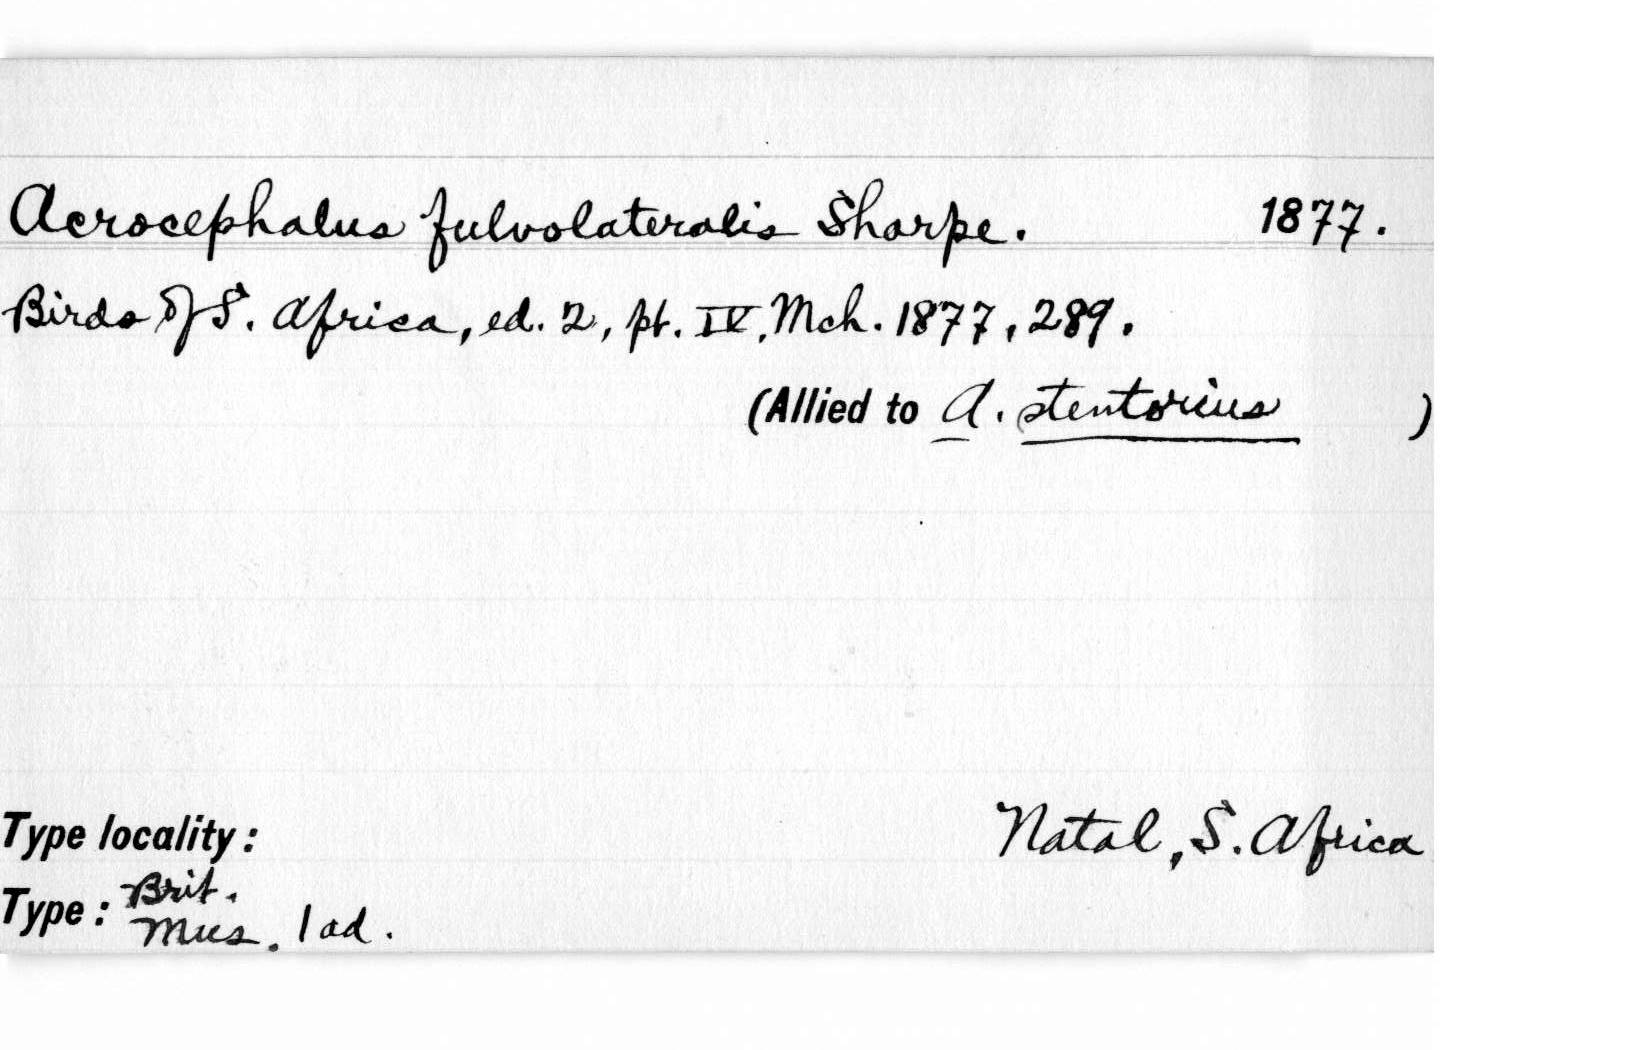 Acrocephalus fulvolateralis Sharpe. 1877.
Birds of S. Africa, ed. 2, pt. IV, Mch. 1877, 289.
(Allied to A. stentorius )
Type locality: Natal, S. Africa
Type: Brit. Mus. 1 ad.